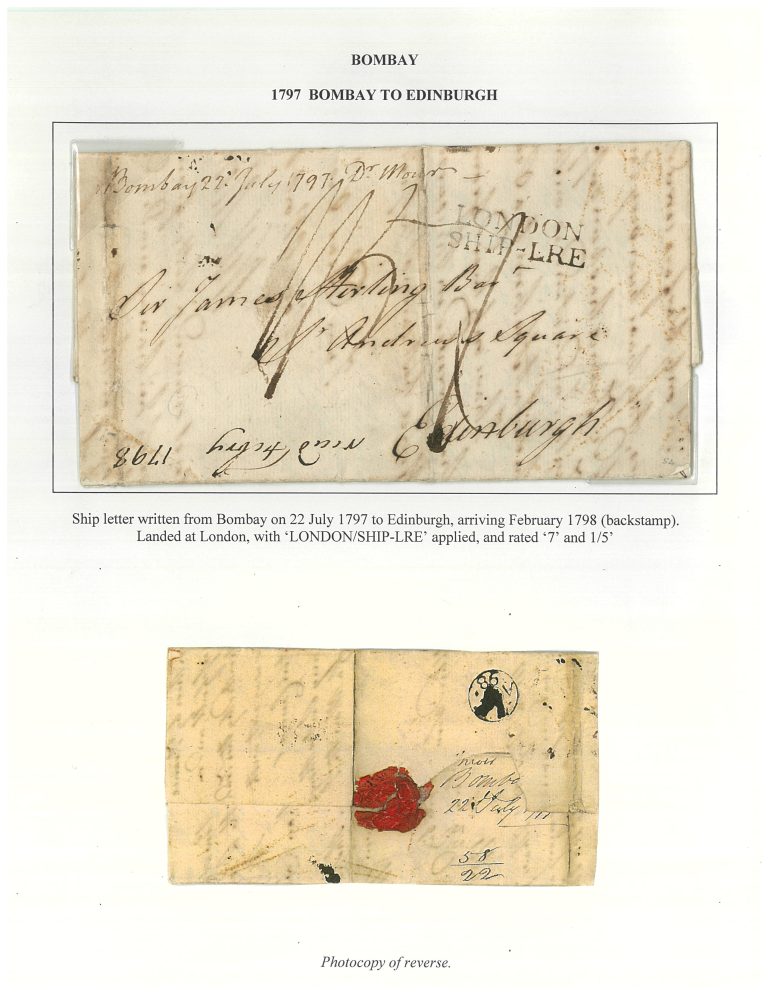 BOMBAY
1797 BOMBAY TO EDINBURGH
Bombay 22. July 1797. Dr. Moir
LONDON
SHIP-LRE
Sir James Stirling Bart
St Andrew's Square
Edinburgh
1798
Ship letter written from Bombay on 22 July 1797 to Edinburgh, arriving February 1798 (backstamp).
Landed at London, with ‘LONDON/SHIP-LRE’ applied, and rated ‘7’ and 1/5’
98
Bomba
22 July
58
22
Photocopy of reverse.